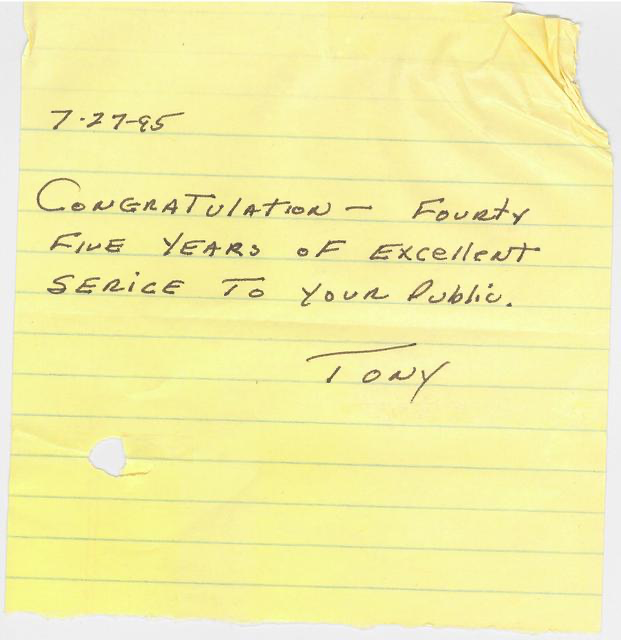 7-27-95
CONGRATULATION - FOURTY
FIVE YEARS OF EXCELLENT
SERICE TO YOUR PUBLIC.
TONY